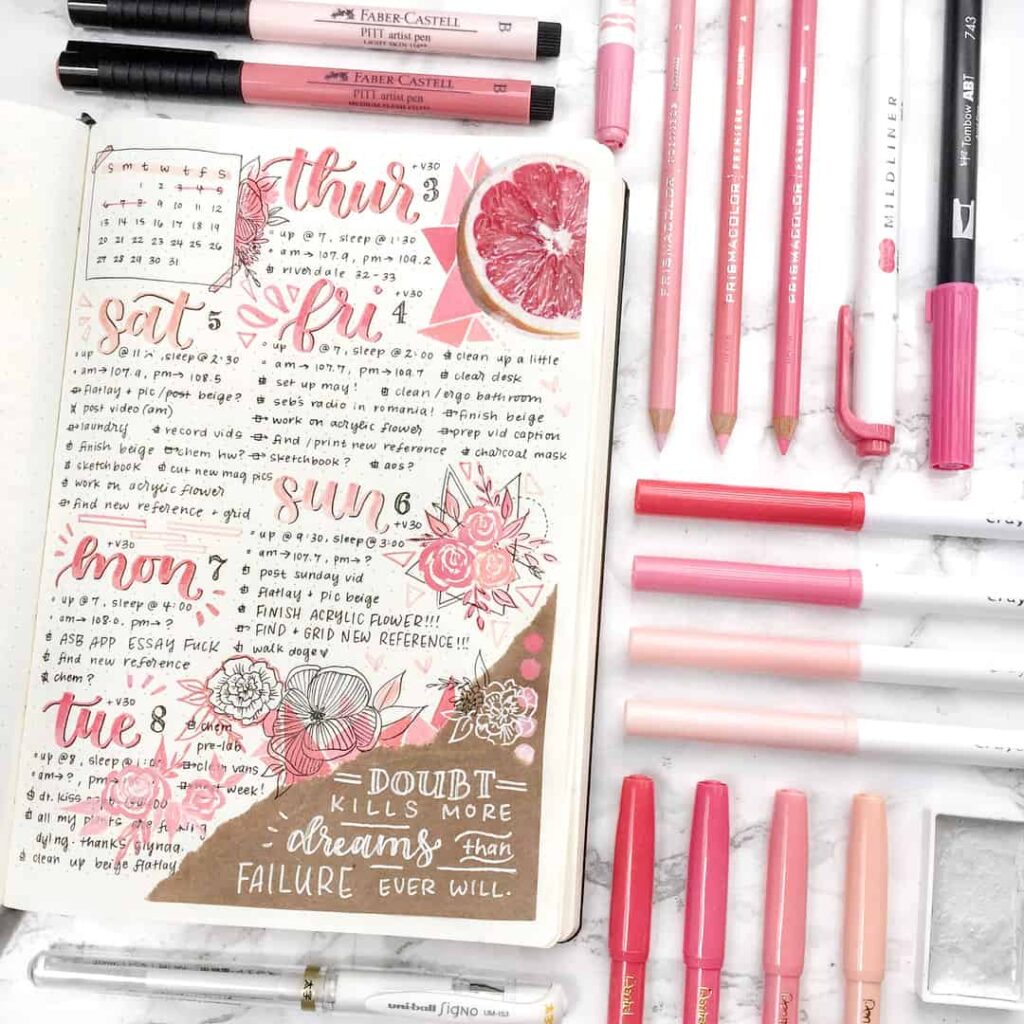 FABER-CASTELL
PITT artist pen
B
FABER-CASTELL
PITT artist pen
B
PRISMACOLOR PREMIER
PRISMACOLOR PREMIER
PRISMACOLOR PREMIER
MILDLINER
Tombow ABT
743
s m t w t f s
1 2 3 4 5
6 7 8 9 10 11 12
13 14 15 16 17 18 19
20 21 22 23 24 25 26
27 28 29 30 31
thur 3
+V30
up @ 7, sleep @ 1:30
am → 107.9, pm → 109.2
riverdale 32-33
fri 4
+V30
up @ 7, sleep @ 2:00
am → 107.7, pm → 109.7
set up may!
seb's radio in romania!
work on acrylic flower
find/print new reference
sketchbook?
aos?
clean up a little
clear desk
clean/ergo bathroom
finish beige
prep vid caption
charcoal mask
sat 5
up @ 11, sleep @ 2:30
am → 107.9, pm → 108.5
flatlay + pic/post beige?
post video (am)
laundry
record vids
finish beige
chem hw?
sketchbook
cut new mag pics
work on acrylic flower
find new reference + grid
sun 6
+V30
up @ 9:30, sleep @ 3:00
am → 107.7, pm → ?
post sunday vid
flatlay + pic beige
FINISH ACRYLIC FLOWER!!!
FIND + GRID NEW REFERENCE!!!
walk doge
mon 7
+V30
up @ 7, sleep @ 4:00
am → 108.0, pm → ?
ASB APP ESSAY FUCK
find new reference
chem?
tue 8
+V30
up @ 8, sleep @
am → ?, pm →
dr. kiss
all my plants are fucking
dying. thanks
clean up beige flatlay.
chem
pre-lab
clean vans
week!
=DOUBT=
KILLS MORE
dreams than
FAILURE EVER WILL.
uni-ball Signo UM-153
Cray
Cray
Cray
Cray
Pentel